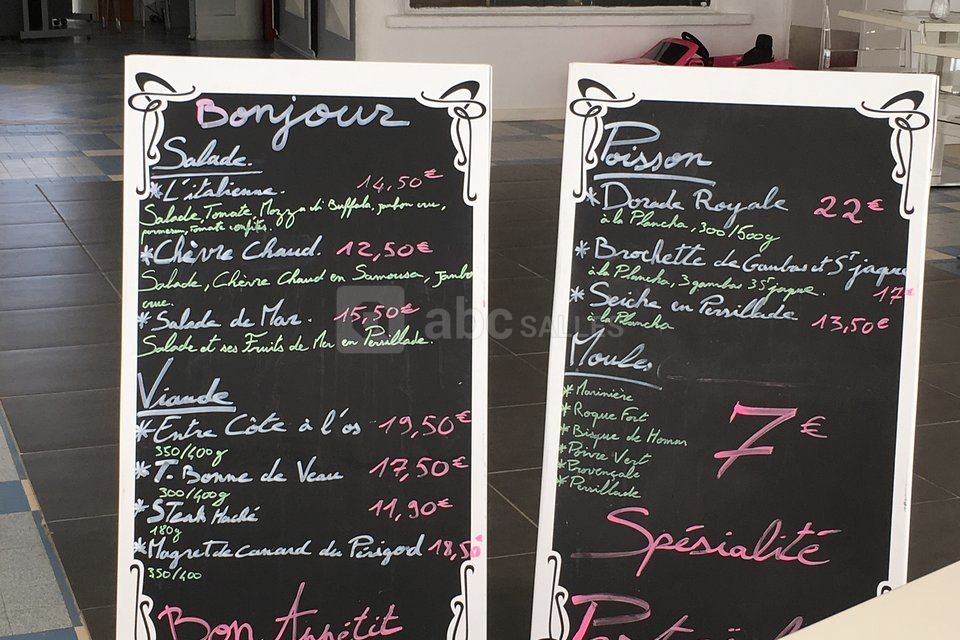 Bonjour
Salade.
*L'italienne. 14,50€
Salade, Tomate, Mozza di Buffala, jambon cru,
parmesan, tomate confites.
*Chèvre Chaud. 12,50€
Salade, Chèvre Chaud en Samousa, jambon
crue.
*Salade de Mer. 15,50€
Salade et ses Fruits de Mer en Persillade.
Viande
*Entre Côte à l'os 19,50€
350/400g
*T. Bonne de Veau 17,50€
300/400g
*STeak Haché 11,90€
180g
*Magret de canard du Périgord 18,50
350/400
Bon Appétit
Poisson
*Dorade Royale 22€
à la Plancha, 300/500g
*Brochette de Gambas et St jaque
à la Plancha, 3 gambas 3 St jaque. 17€
*Seiche en Persillade 13,50€
à la Plancha
Moules
*Marinière
*Roque Fort
*Bisque de Homar
*Poivre Vert
*Provençale
*Persillade
7€
Spésialité
abc SALLES